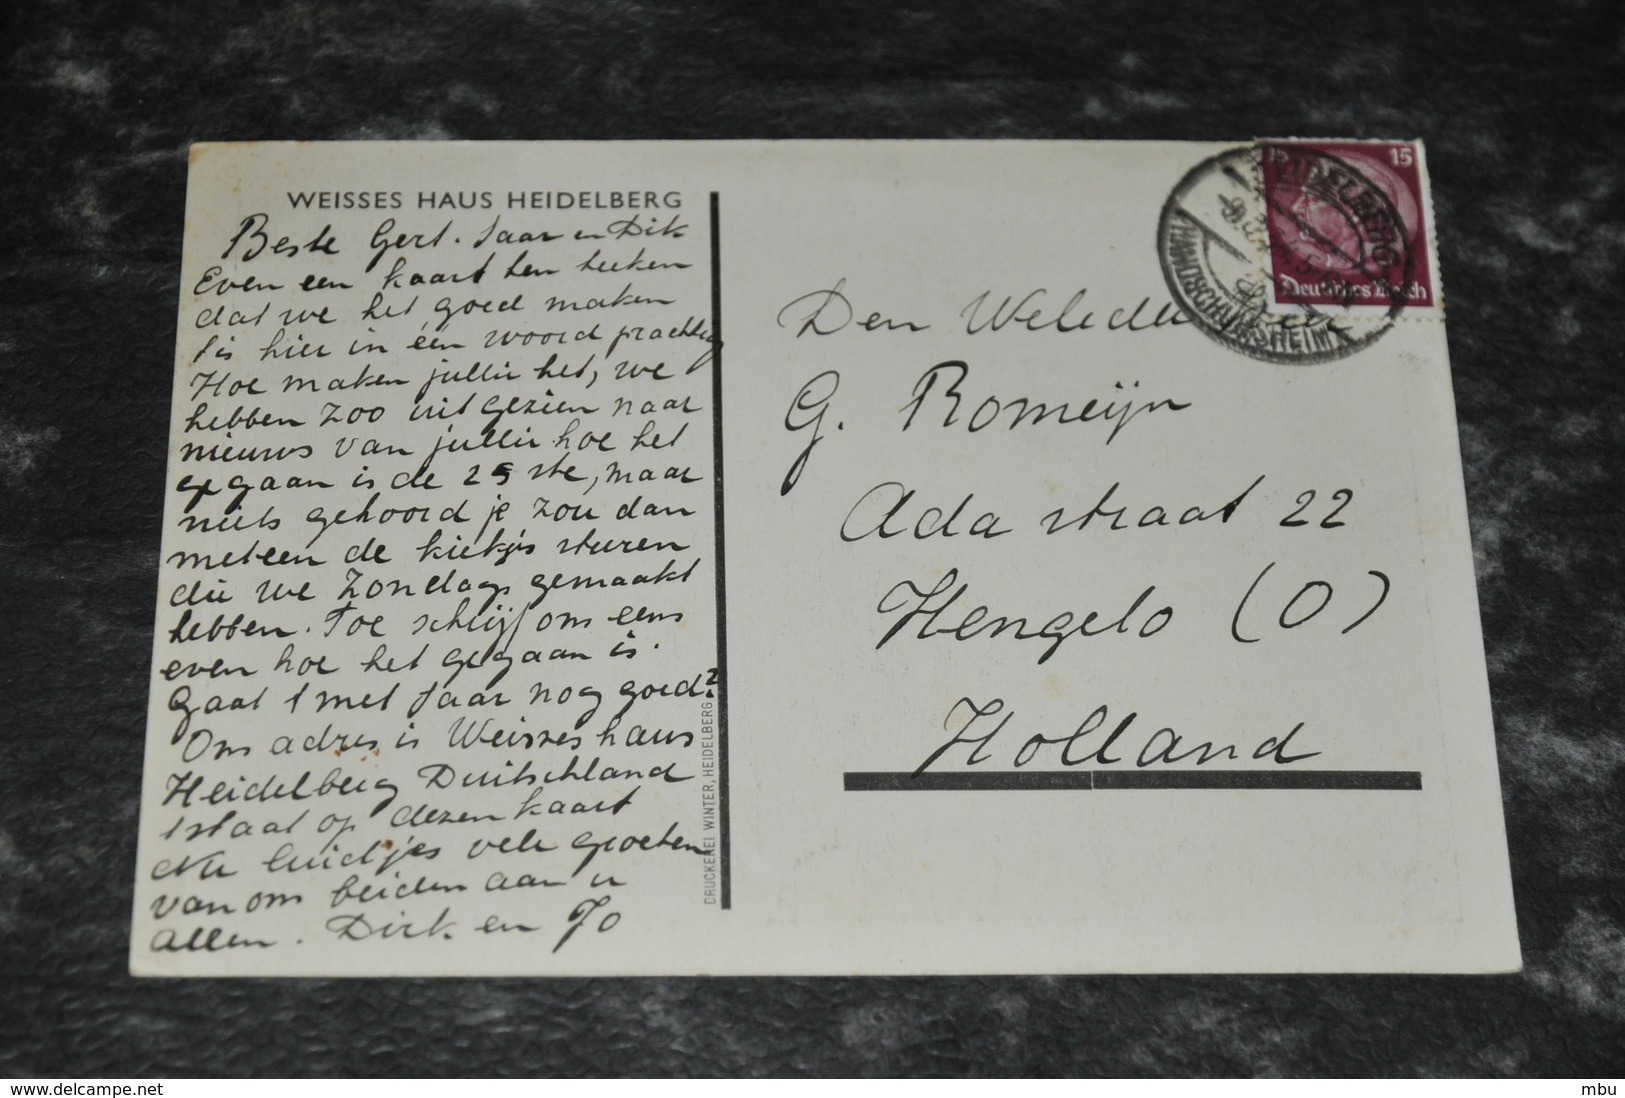 WEISSES HAUS HEIDELBERG
Beste Gert. Saar en Dik
Even een kaart ten teeken
dat we het goed maken
't is hier in één woord prachtig
Hoe maken jullie het, we
hebben zoo uitgezien naar
nieuws van jullie hoe het
gegaan is de 25 ste, maar
niets gehoord je zou dan
meteen de kiekjes sturen
die we Zondags gemaakt
hebben. Toe schrijf ons eens
even hoe het gegaan is.
Gaat 't met Saar nog goed?
Ons adres is Weisses haus
Heidelberg Duitschland
't staat op dezen kaart
Nu luidtjes vele groeten
van ons beiden aan u
allen. Dirk en Jo
DRUCKEREI WINTER, HEIDELBERG
15
HEIDELBERG
HANDSCHUHSHEIM
Deutsches Reich
Den Weledel Heer
G. Romeijn
Ada straat 22
Hengelo (O)
Holland
www.delcampe.net
mbu